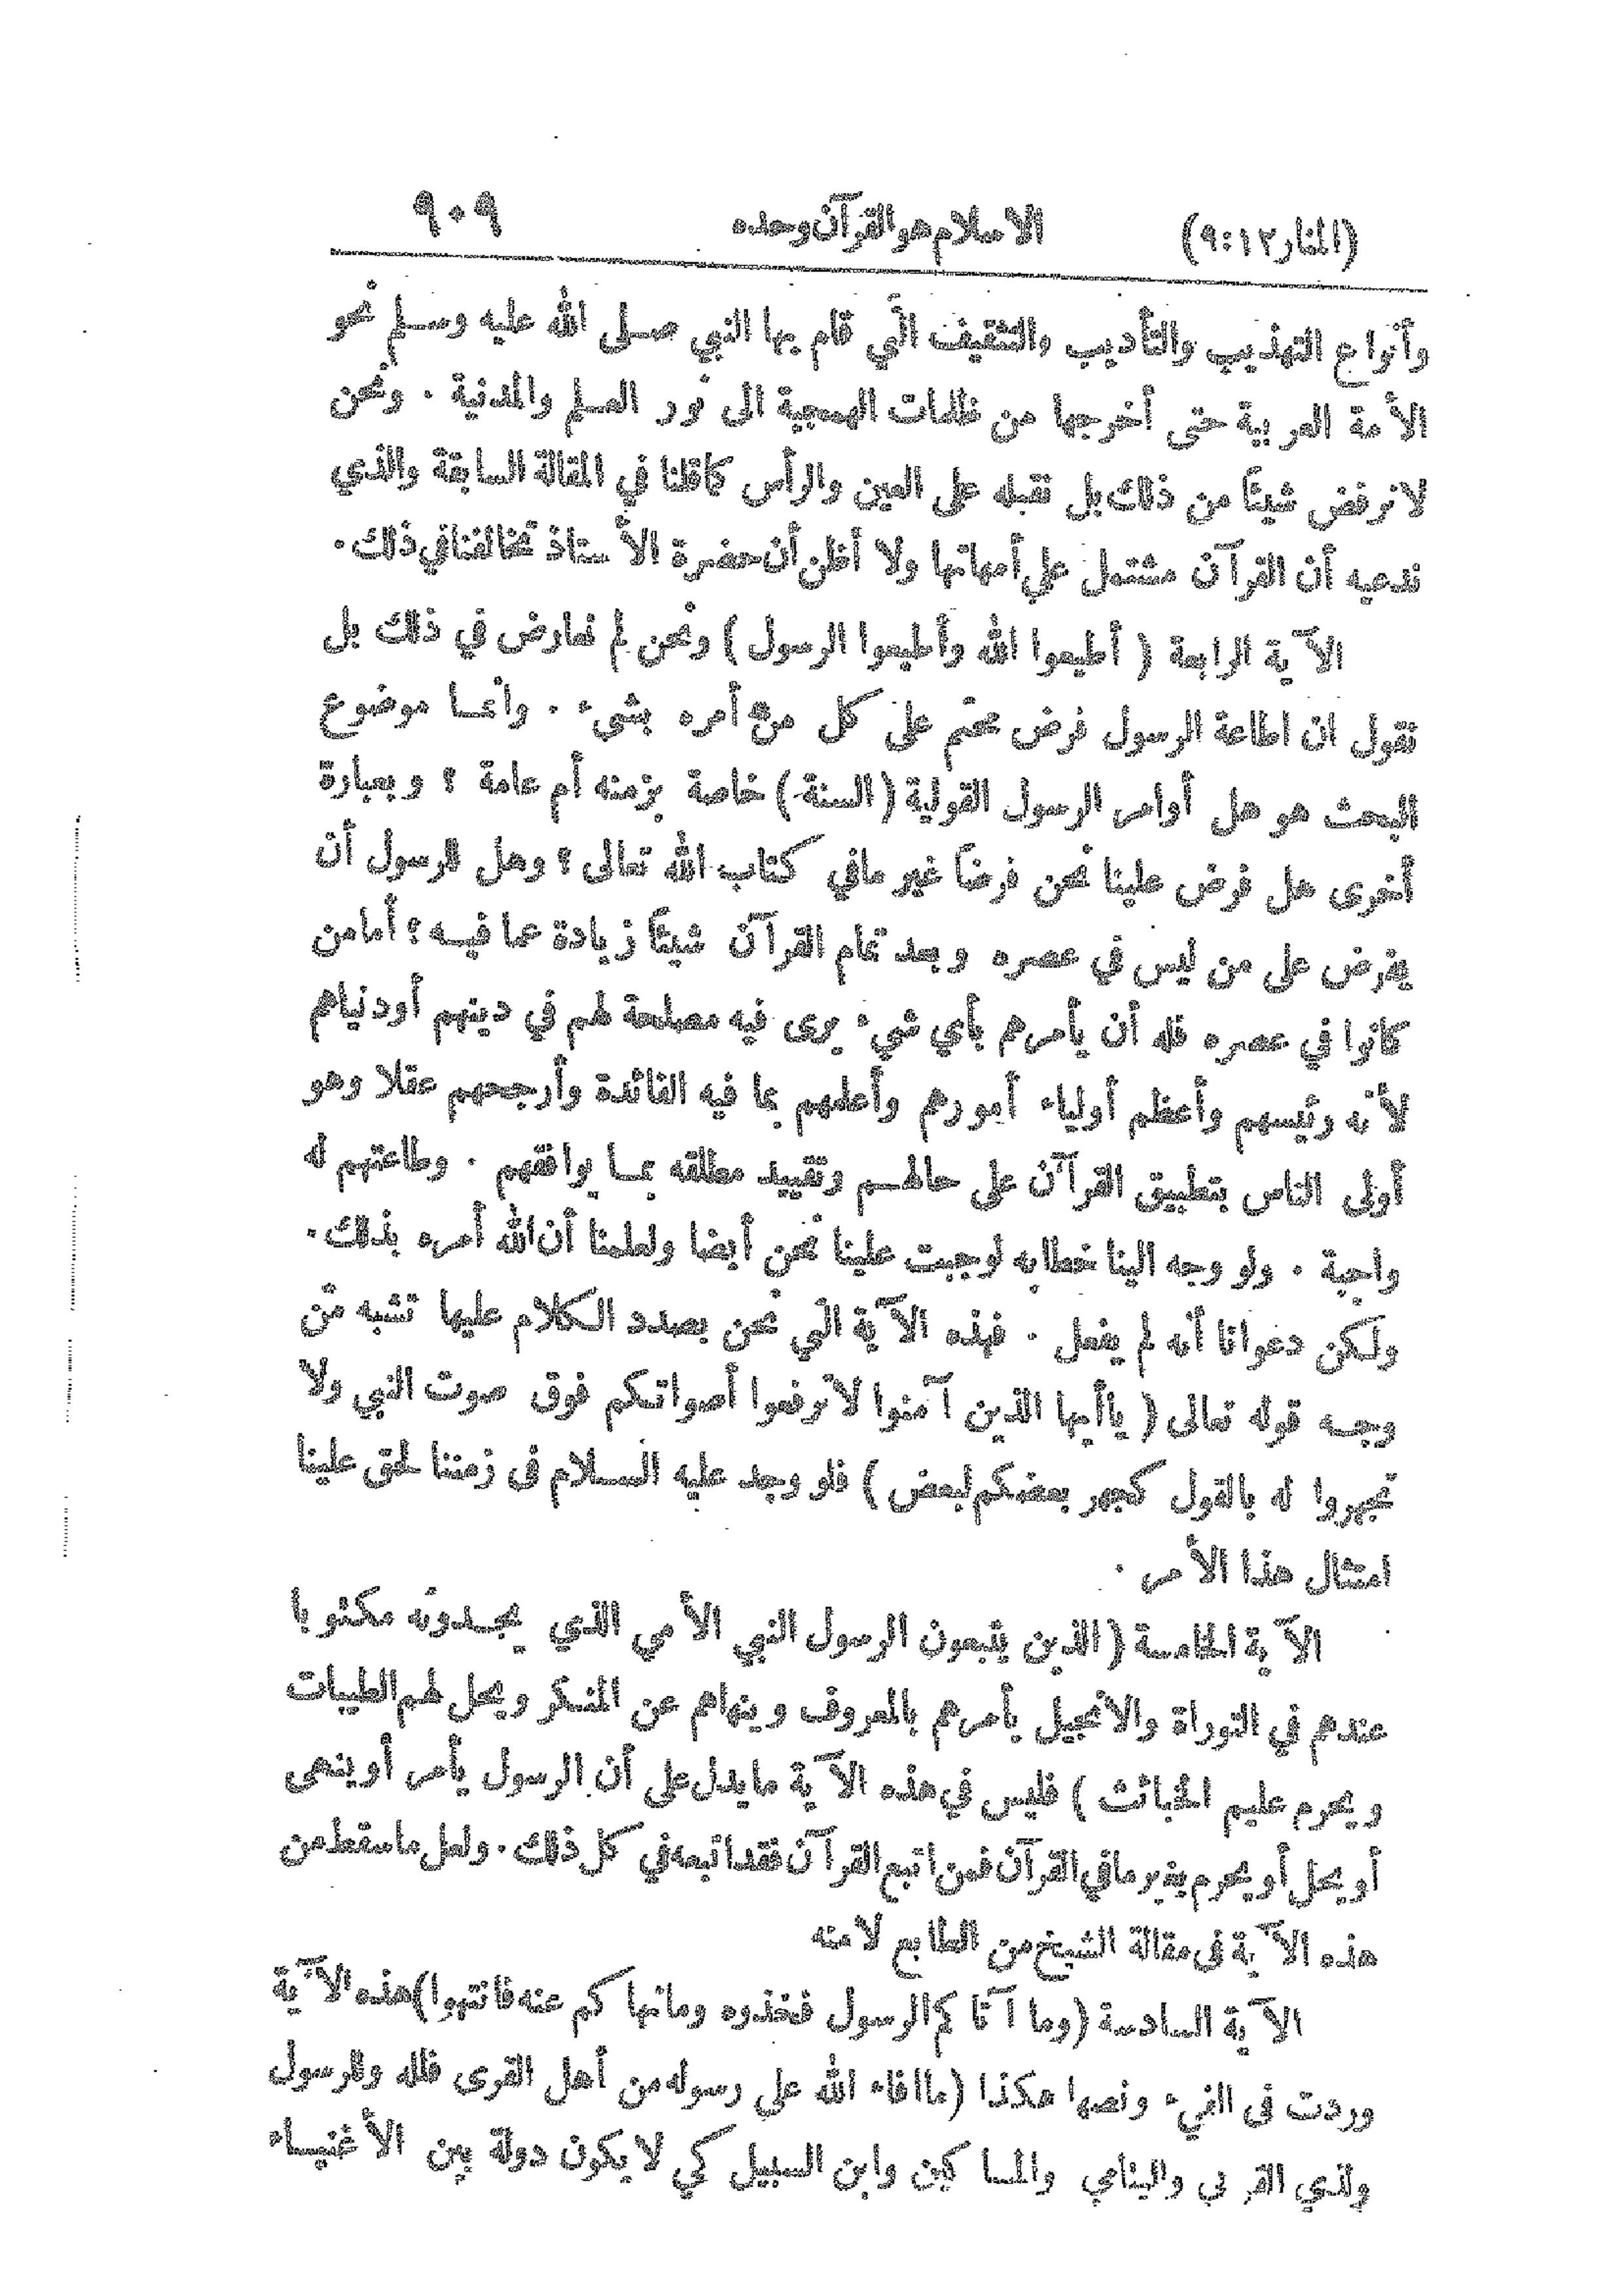 (المنار ١٢:٩) الاسلام هو القرآن وحده ٩٠٩
وأنواع التهذيب والتأديب والتثقيف التي قام بها النبي صلى الله عليه وسلم نحو
الأمة العربية حتى أخرجها من ظلمات الهمجية الى نور العلم والمدنية . ونحن
لا نرفض شيئاً من ذلك بل نقبله على العين والرأس كما قلنا في المقالة السابقة والذي
ندعيه أن القرآن مشتمل على أمهاتها ولا أظن أن حضرة الأستاذ يخالفنا في ذلك .
الآية الرابعة ( أطيعوا الله وأطيعوا الرسول ) ونحن لم نعارض في ذلك بل
نقول ان اطاعة الرسول فرض محتم على كل من أمره بشيء . وانما موضوع
البحث هو هل أوامر الرسول القولية (السنة) خاصة بزمنه أم عامة ؟ وبعبارة
أخرى هل فرض علينا نحن فرضاً غير ما في كتاب الله تعالى ؟ وهل للرسول أن
يفرض على من ليس في عصره وبعد تمام القرآن شيئاً زيادة عما فيه ؟ أما من
كانوا في عصره فله أن يأمرهم بأي شيء يرى فيه مصلحة لهم في دينهم أو دنياهم
لأنه رئيسهم وأعظم أولياء أمورهم وأعلمهم بما فيه الفائدة وأرجحهم عقلا وهو
أولى الناس بتطبيق القرآن على حالهم وتقييد مطلقه بما يوافقهم . وطاعتهم له
واجبة . ولو وجه الينا خطابه لوجبت علينا نحن أيضا ولعلمنا أن الله أمره بذلك .
ولكن دعوانا أنه لم يفعل . فهذه الآية التي نحن بصدد الكلام عليها تشبه من
وجه قوله تعالى ( يا أيها الذين آمنوا لا ترفعوا أصواتكم فوق صوت النبي ولا
تجهروا له بالقول كجهر بعضكم لبعض ) فلو وجد عليه السلام في زمننا لحق علينا
امتثال هذا الأمر .
الآية الخامسة ( الذين يتبعون الرسول النبي الأمي الذي يجدونه مكتوبا
عندهم في التوراة والانجيل يأمرهم بالمعروف وينهاهم عن المنكر ويحل لهم الطيبات
ويحرم عليهم الخبائث ) فليس في هذه الآية ما يدل على أن الرسول يأمر أو ينهى
أو يحل أو يحرم بغير ما في القرآن فمن اتبع القرآن فقد اتبعه في كل ذلك . ولعل ما سقط من
هذه الآية في مقالة الشيخ من الطابع لا منه
الآية السادسة (وما آتاكم الرسول فخذوه وما نهاكم عنه فانتهوا) هذه الآية
وردت في الفيء ونصها هكذا (ما افاء الله على رسوله من أهل القرى فلله وللرسول
ولذي القربى واليتامى والمساكين وابن السبيل كي لا يكون دولة بين الأغنياء